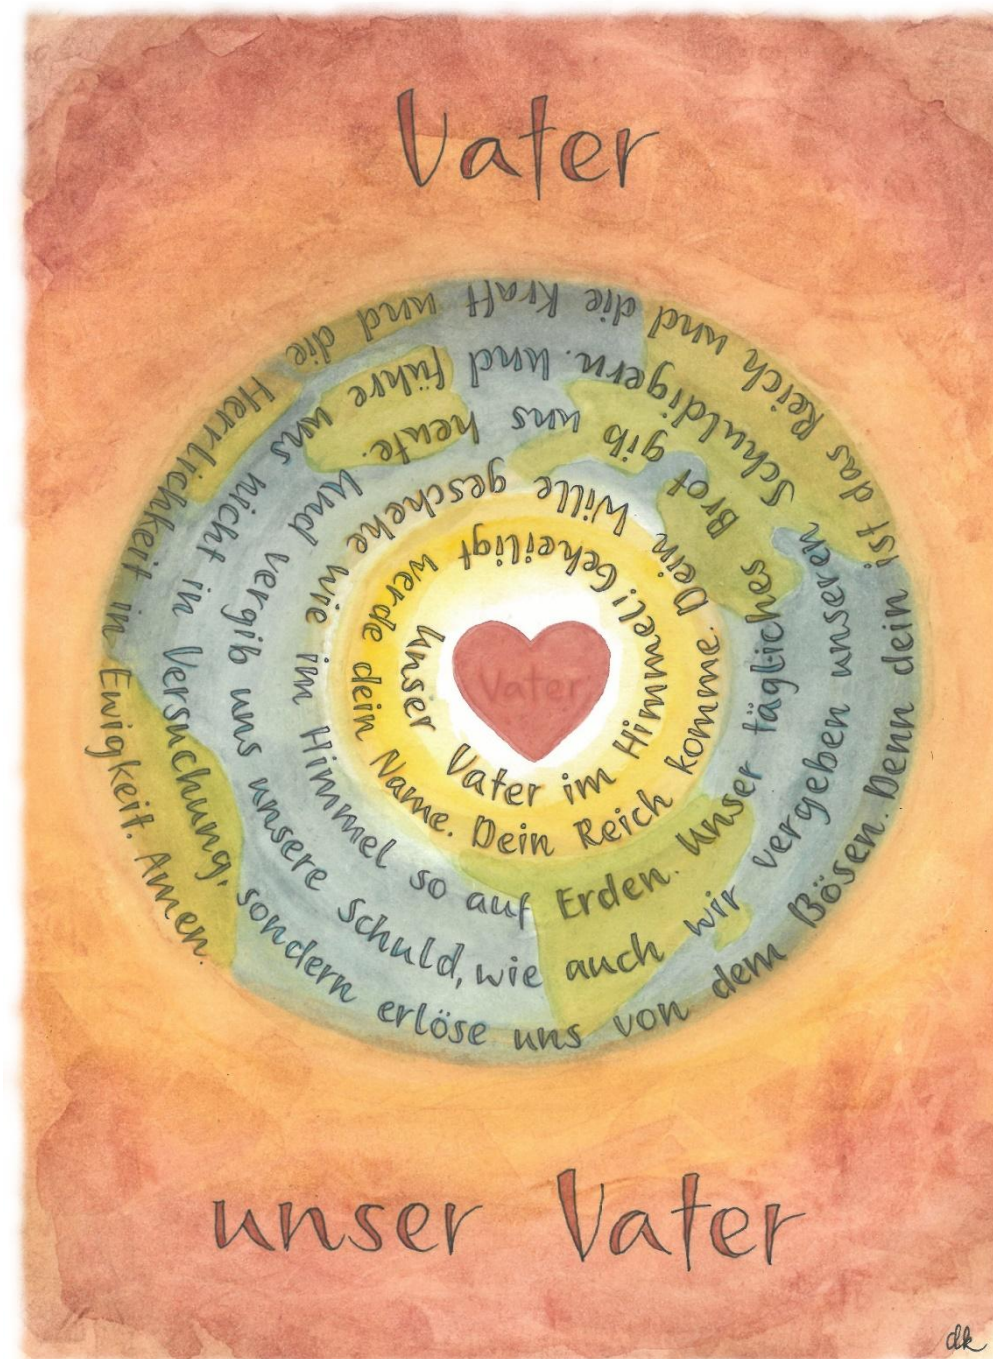 Vater
Vater
Unser Vater im Himmel! Geheiligt werde dein Name. Dein Reich komme. Dein Wille geschehe wie im Himmel so auf Erden. Unser tägliches Brot gib uns heute. Und vergib uns unsere Schuld, wie auch wir vergeben unseren Schuldigern. Und führe uns nicht in Versuchung, sondern erlöse uns von dem Bösen. Denn dein ist das Reich und die Kraft und die Herrlichkeit in Ewigkeit. Amen.
unser Vater
dk